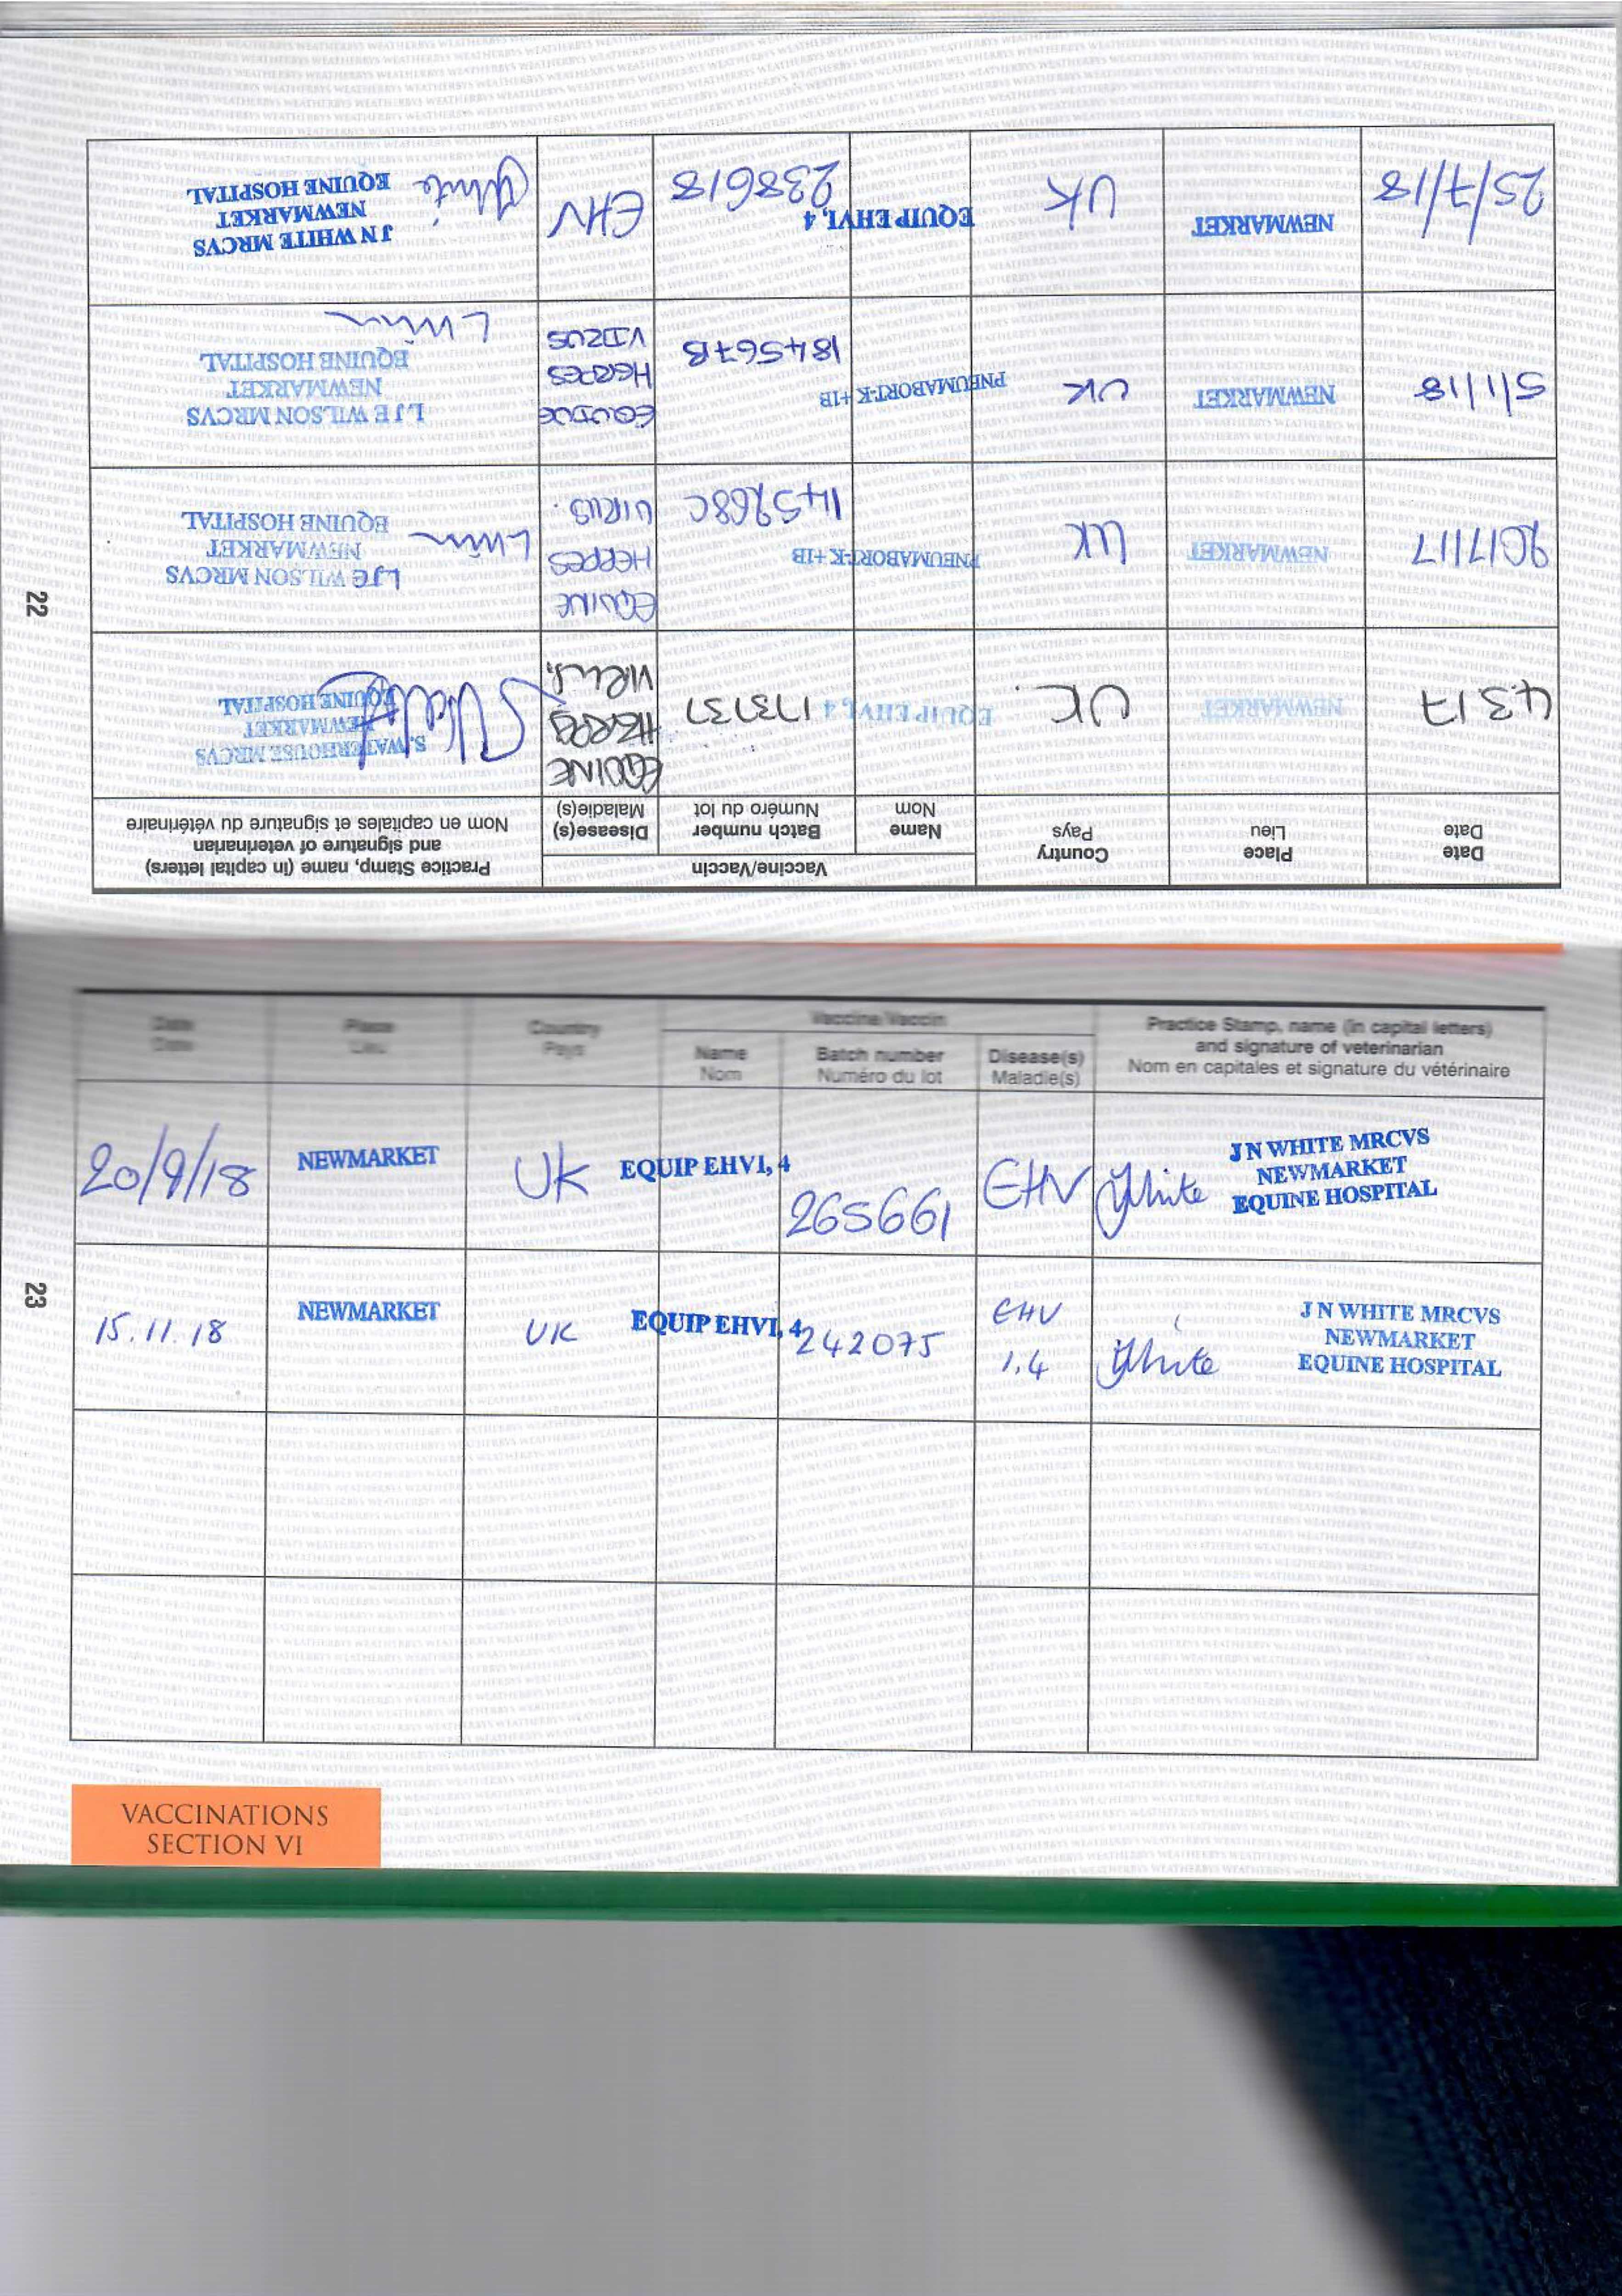 22
Date
Date
Place
Lieu
Country
Pays
Vaccine/Vaccin
Name
Nom
Batch number
Numéro du lot
Disease(s)
Maladie(s)
Practice Stamp, name (in capital letters)
and signature of veterinarian
Nom en capitales et signature du vétérinaire
4.3.17
NEWMARKET
UK.
EQUIP EHVI, 4
173737
EQUINE
HERPES
VIRUS.
S. WATERHOUSE MRCVS
NEWMARKET
EQUINE HOSPITAL
NEWMARKET
UK
PNEUMABORT-K +1B
145268C
EQUINE
HERPES
VIRUS.
LJE WILSON MRCVS
NEWMARKET
EQUINE HOSPITAL
5/1/18
NEWMARKET
UK
PNEUMABORT-K +1B
184567B
EQUINE
HERPES
VIRUS
LJE WILSON MRCVS
NEWMARKET
EQUINE HOSPITAL
25/7/18
NEWMARKET
UK
EQUIP EHVI, 4
EHV
White
J N WHITE MRCVS
NEWMARKET
EQUINE HOSPITAL
23
Date
Date
Place
Lieu
Country
Pays
Vaccine/Vaccin
Name
Nom
Batch number
Numéro du lot
Disease(s)
Maladie(s)
Practice Stamp, name (in capital letters)
and signature of veterinarian
Nom en capitales et signature du vétérinaire
20/9/18
NEWMARKET
UK
EQUIP EHVI, 4
265661
EHV
White
J N WHITE MRCVS
NEWMARKET
EQUINE HOSPITAL
15.11.18
NEWMARKET
UK
EQUIP EHVI, 4
242075
EHV
1,4
White
J N WHITE MRCVS
NEWMARKET
EQUINE HOSPITAL
VACCINATIONS
SECTION VI